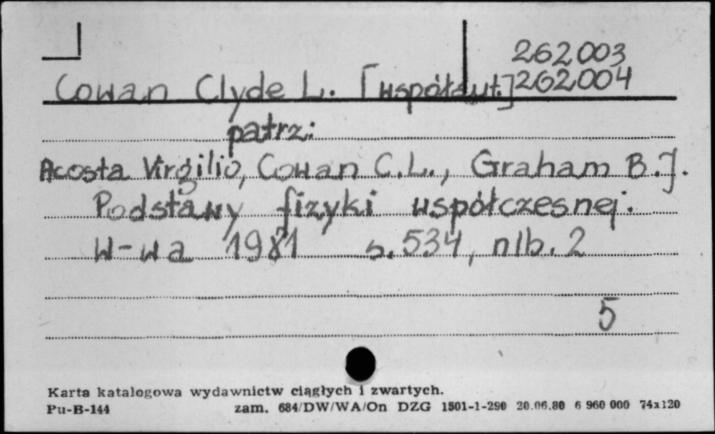 262003
Cowan Clyde L. [współaut.] 262004
patrz:
Acosta Virgilio, Cowan C.L., Graham B.J.
Podstawy fizyki współczesnej.
W-wa 1981 s. 534, nlb. 2
5
Karta katalogowa wydawnictw ciągłych i zwartych.
Pu-B-144 zam. 684/DW/WA/On DZG 1501-1-290 20.06.80 6 960 000 74x120